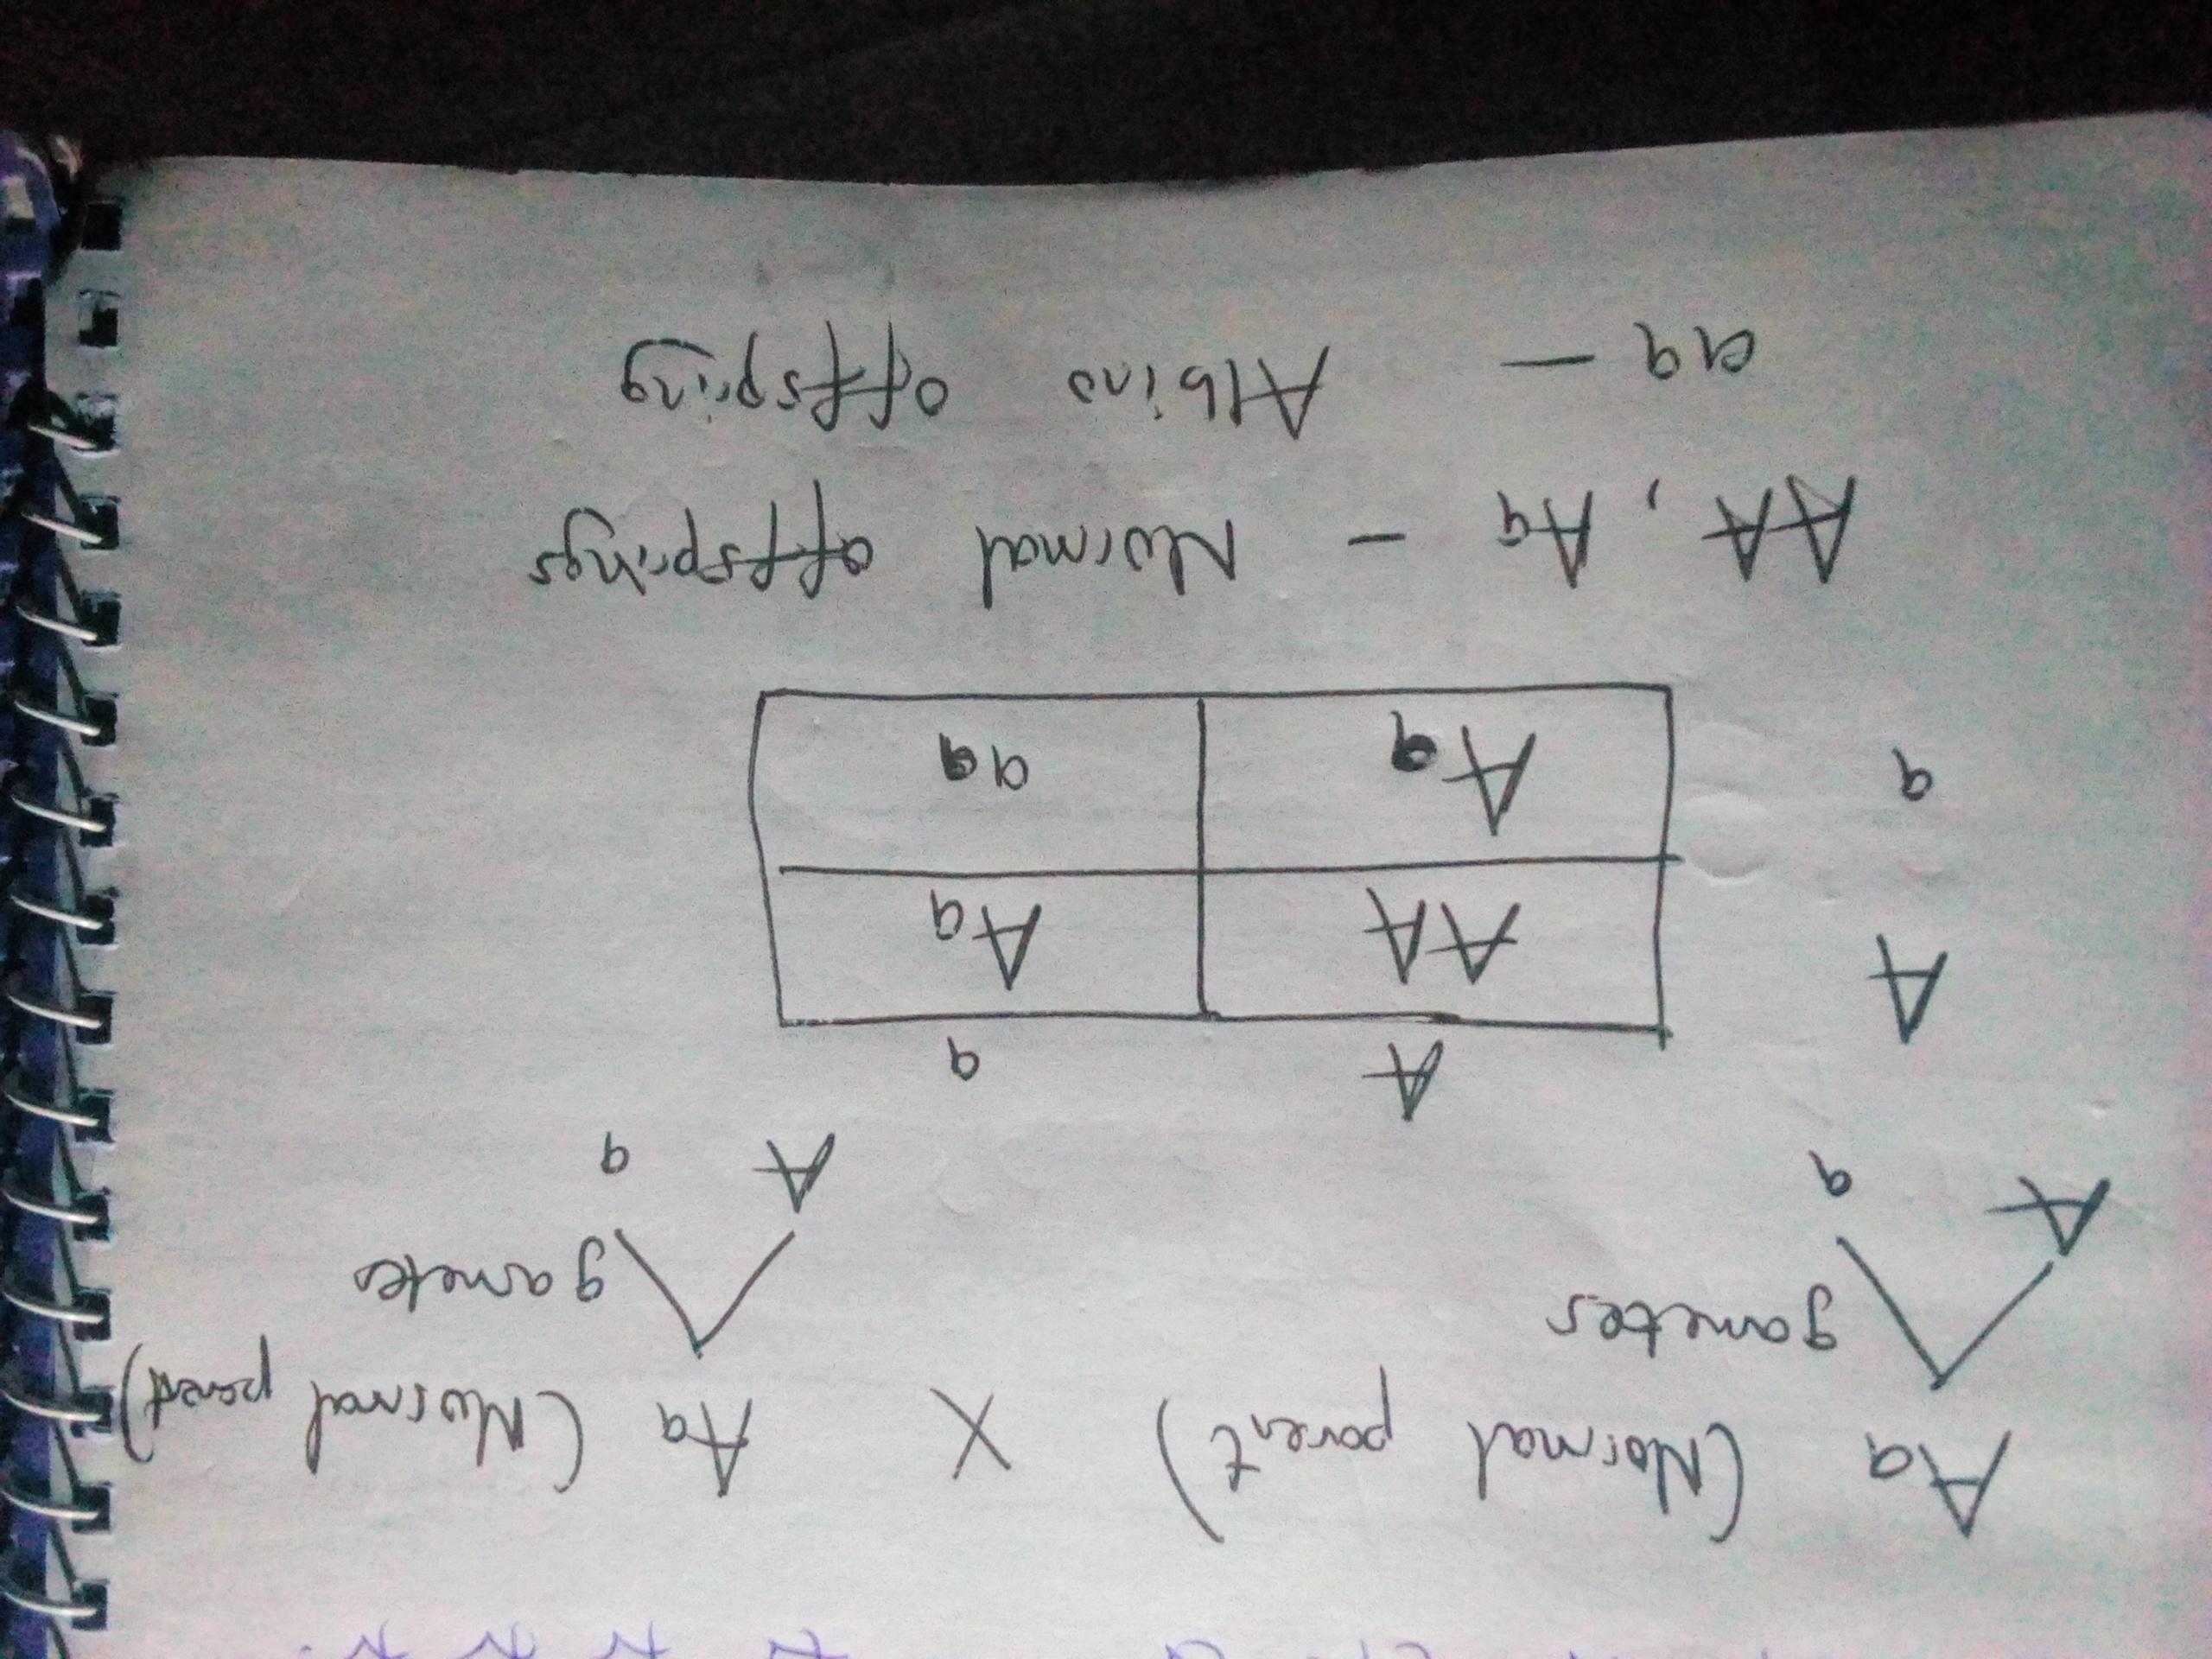 Aa (Normal parent) X Aa (Normal parent)
gametes gametes
A a A a
A a
A AA Aa
a Aa aa
AA, Aa - Normal offsprings
aa - Albino offspring